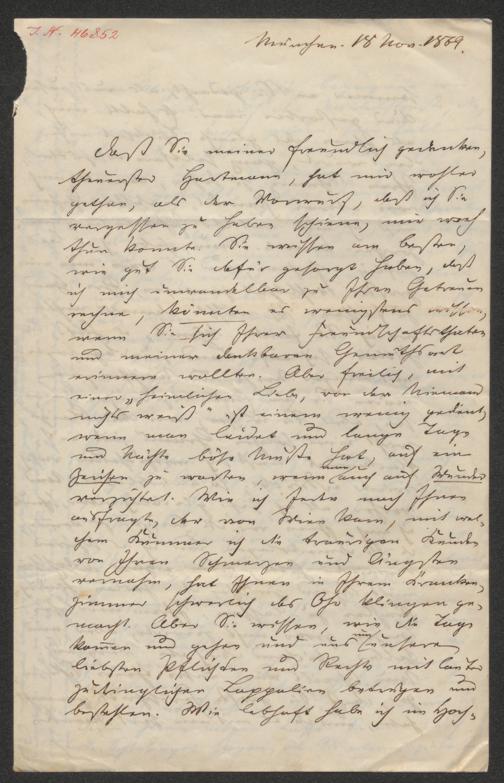 I. N. 46852
München. 18 Nov. 1869.
Daß Sie meiner freundlich gedenken,
theuerster Hartmann, hat mir wohler
gethan, als der Vorwurf, daß ich Sie
vergessen zu haben schiene, mir weh
thun konnte. Sie wissen am besten,
wie gut Sie dafür gesorgt haben, daß
ich mich unwandelbar zu Ihren Getreuen
rechne, könnten es wenigstens wissen,
wenn Sie sich Ihrer Freundschaftsthaten
und meiner dankbaren Gemüthsart
erinnern wollten. Aber freilich, mit
einer „heimlichen Liebe, von der Niemand
nichts weiß" ist einem wenig gedient,
wenn man leidet und lange Tage
und Nächte böse Muße hat, auf ein
Zeichen zu warten, wenn man auch auf Wunder
verzichtet. Wie ich Jeden nach Ihnen
ausfragte, der von Wien kam, mit wel-
chem Kummer ich die traurigen Kunden
von Ihren Schmerzen und Ängsten
vernahm, hat Ihnen in Ihrem Kranken-
zimmer schwerlich das Ohr klingen ge-
macht. Aber Sie wissen, wie die Tage
kommen und gehen und uns um unsere
liebsten Pflichten und Rechte mit lauter
zudringlichen Lappalien betrügen und
bestehlen. Wie lebhaft habe ich im Hoch-